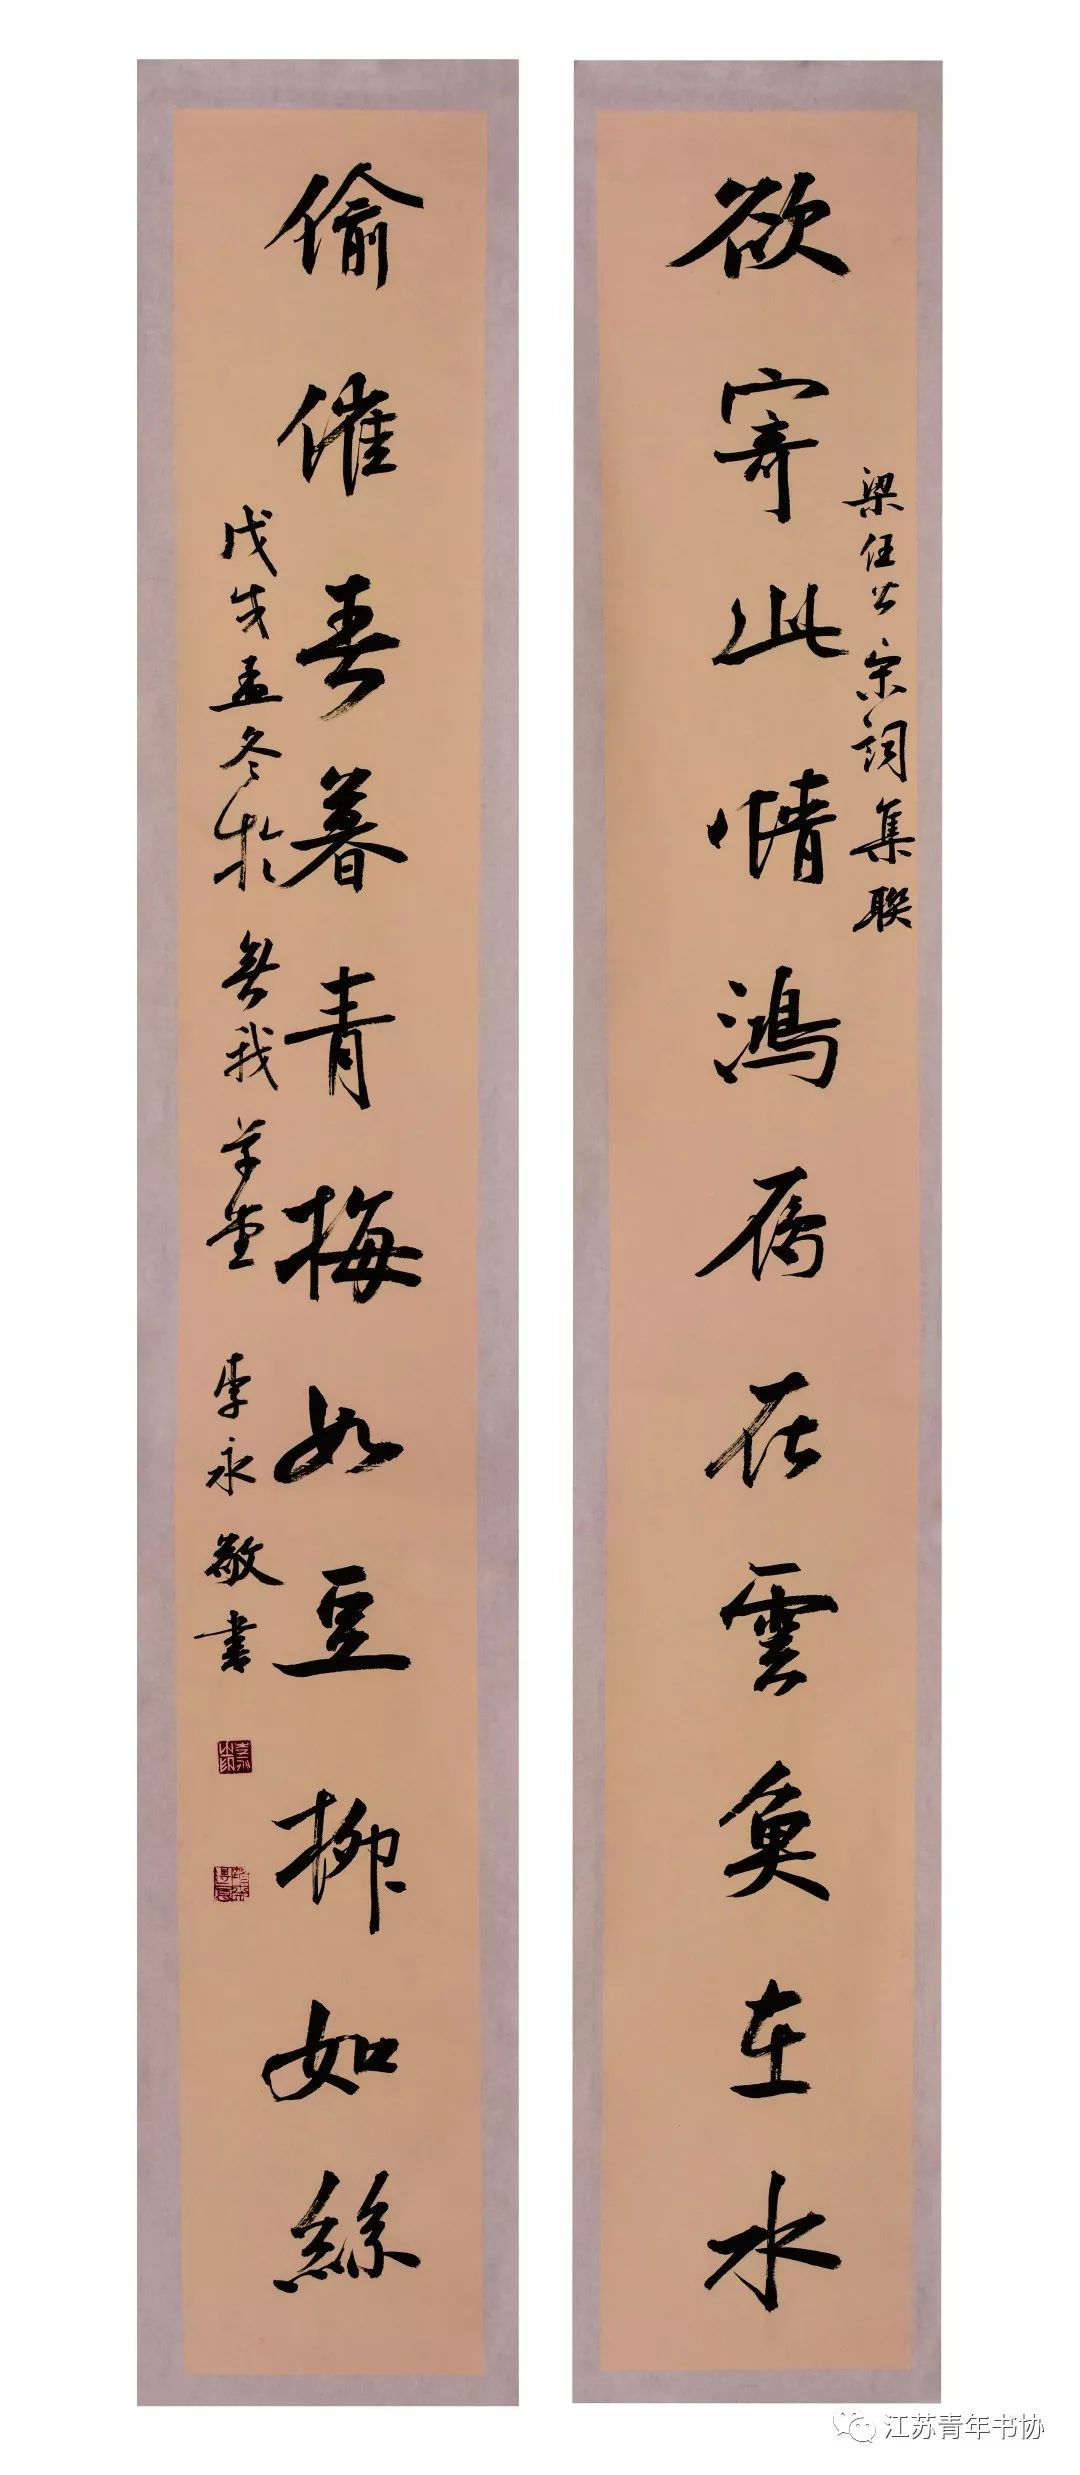 欲寄此情鴻雁在雲魚在水
梁任公宋詞集聯
偷催春暮青梅如豆柳如絲
戊戌孟冬於無我草堂李永敬書
江苏青年书协